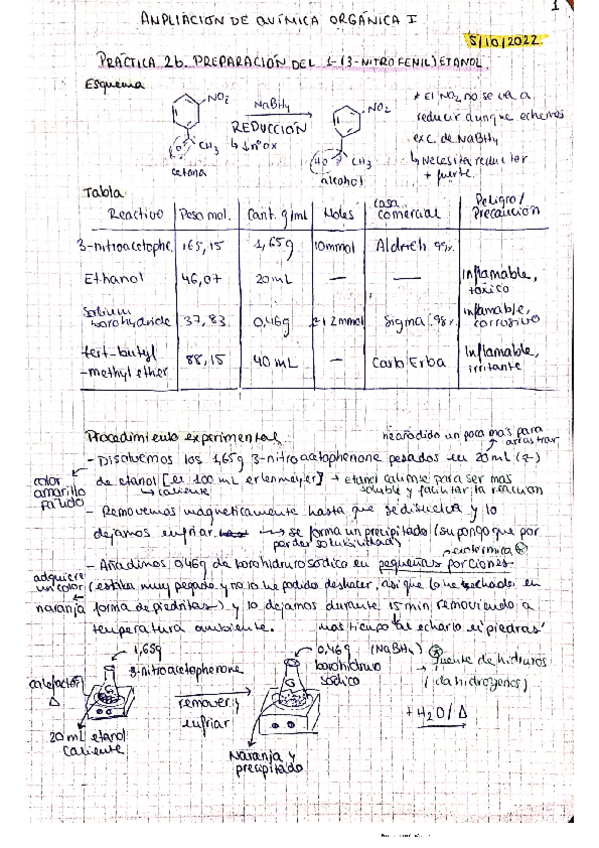 1
AMPLIACIÓN DE QUÍMICA ORGÁNICA I
5/10/2022
PRÁCTICA 2b. PREPARACIÓN DEL 1-(3-NITROFENIL)ETANOL.
Esquema
NO2
NaBH4
REDUCCIÓN
↳ ↓nºox
O
CH3
cetona
NO2
HO
CH3
alcohol
* El NO2 no se va a
reducir aunque echemos
exc. de NaBH4
↳ Necesita reductor
+ fuerte.
Tabla
Reactivo | Peso mol. | Cant. g/mL | Moles | casa comercial | Peligro/Precaución
3-nitroacetophe. | 165,15 | 1,65g | 10mmol | Aldrich 99%. |
Ethanol | 46,07 | 20mL | — | — | Inflamable, tóxico
Sodium borohydride | 37,83 | 0,46g | 12mmol | Sigma 98% | Inflamable, corrosivo
tert-butyl-methyl ether | 88,15 | 40mL | — | Carlo Erba | Inflamable, irritante
Procedimiento experimental
he añadido un poco más para
arrastrar
- Disolvemos los 1,65g 3-nitroacetophenone pesados en 20mL (≈)
color
amarillo
pálido
de etanol [en 100 mL erlenmeyer] → etanol caliente para ser más
↳ caliente
soluble y facilitar la reacción
- Removemos magnéticamente hasta que se disuelva y lo
dejamos enfriar. → se forma un precipitado (supongo que por
perder solubilidad)
exotérmica
- Añadimos 0,46g de borohidruro sódico en pequeñas porciones
adquiere
un color
naranja
(estaba muy pegado y no lo he podido deshacer, así que lo he echado en
forma de piedritas) y lo dejamos durante 15 min, removiendo a
temperatura ambiente.
más tiempo al echarlo en "piedras"
1,65g
3-nitroacetophenone
calefacción
Δ
20mL etanol
caliente
remover y
enfriar
0,46g (NaBH4)
borohidruro
sódico
Naranja y
precipitado
fuente de hidruros
(da hidrógenos)
+ H2O/Δ